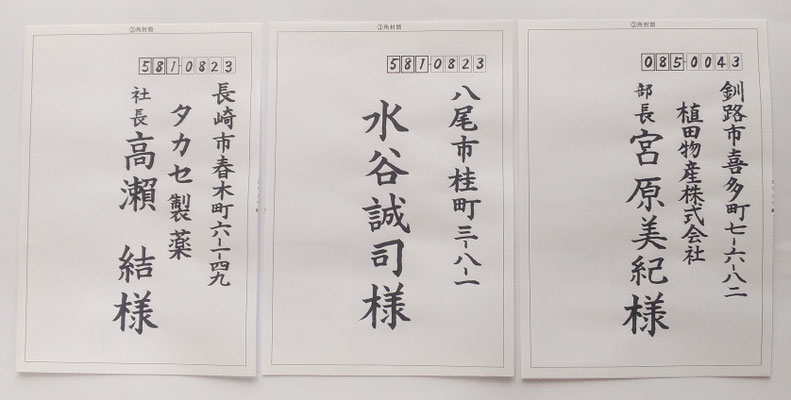 ③角封筒
581-0823
長崎市春木町六-一-四九
タカセ製薬
社長 高瀬 結様
③角封筒
581-0823
八尾市桂町三-八-一
水谷誠司様
③角封筒
085-0043
釧路市喜多町七-六-八二
植田物産株式会社
部長 宮原美紀様